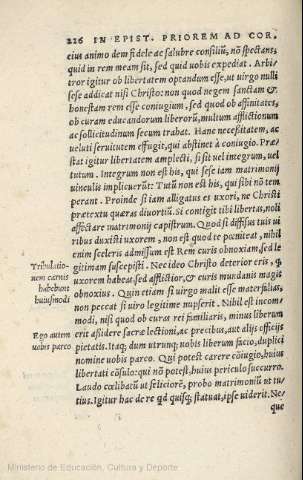 226 IN EPIST. PRIOREM AD COR.
eius animo dem fidele ac salubre consiliũ, nõ spectans
quid in rem meam sit, sed quid uobis expediat. Arbi
tror igitur ob libertatem optandum esse, ut uirgo nulli
sese addicat nisi Christo: non quod negem sanctam &
honestam rem esse coniugium, sed quod ob affinitates,
ob curam educandorum liberorũ, multum afflictionum
ac sollicitudinum secum trahat. Hanc necessitatem, ac
ueluti seruitutem effugit, qui abstinet à coniugio. Præ
stat igitur libertatem amplecti, si sit uel integrum, uel
tutum. Integrum non est his, qui sese iam matrimonij
uinculis implicuerũt: Tutũ non est his, qui sibi nõ tem
perant. Proinde si iam alligatus es uxori, ne Christi
prætextu quæras diuortiũ. Si contigit tibi libertas, noli
affectare matrimonij capistrum. Quod si diffisus tuis ui
ribus duxisti uxorem, non est quod te pœniteat, nihil
enim sceleris admissum est. Rem curis obnoxiam, sed le
gitimam suscepisti. Nec ideo Christo deterior eris, q
uxorem habeas, sed afflictior, & curis mundanis magis
obnoxius. Quin etiam si uirgo malit esse materfamilias,
non peccat si uiro legitime nupserit. Nihil est incom
modi, nisi quod ob curas rei familiaris, minus liberum
erit assidere sacræ lectioni, ac precibus, aut alijs officijs
pietatis. Itaq; dum utrunq; uobis liberum facio, duplici
nomine uobis parco. Qui potest carere cõiugio, huius
libertati cõsulo: qui nõ potest, huius periculo succurro.
Laudo cœlibatũ ut feliciorẽ, probo matrimoniũ ut tu
tius. Igitur hac de re qd quisq; statuat, ipse uiderit. Ne
que
Tribulatio-
nem carnis
habebunt
huiusmodi
Ego autem
uobis parco
Ministerio de Educación, Cultura y Deporte